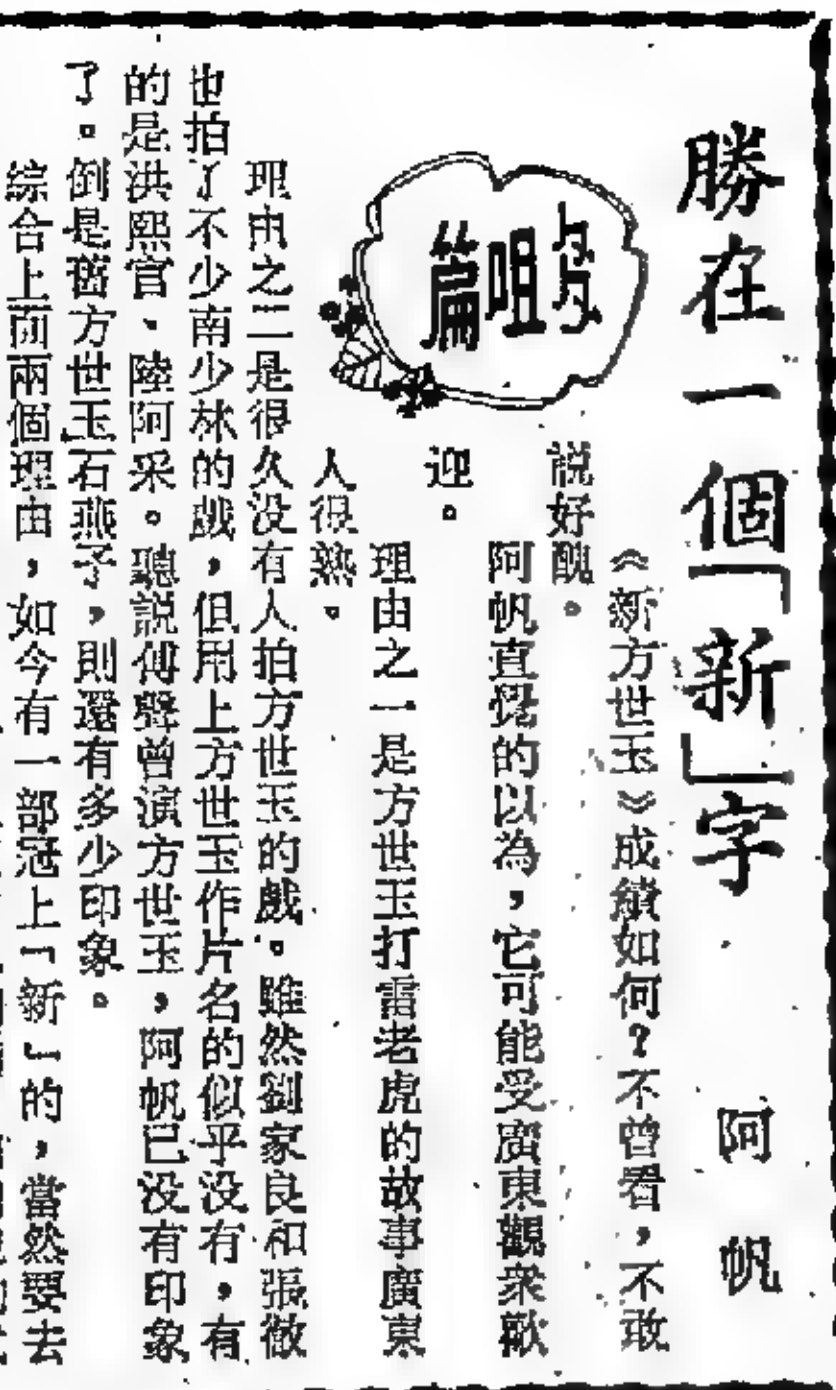 勝在一個「新」字　阿帆
咀篇
《新方世玉》成績如何?不曾看,不敢
説好醜。
阿帆直覺的以為,它可能受廣東觀衆歡
迎。
理由之一是方世玉打雷老虎的故事廣東
人很熟。
理由之二是很久没有人拍方世玉的戲。雖然劉家良和張徹
也拍了不少南少林的戲,但用上方世玉作片名的似乎没有,有
的是洪熙官、陸阿采。聽説傅聲曾演方世玉,阿帆已没有印象
了。倒是舊方世玉石燕子,則還有多少印象。
綜合上面兩個理由,如今有一部冠上「新」的,當然要去